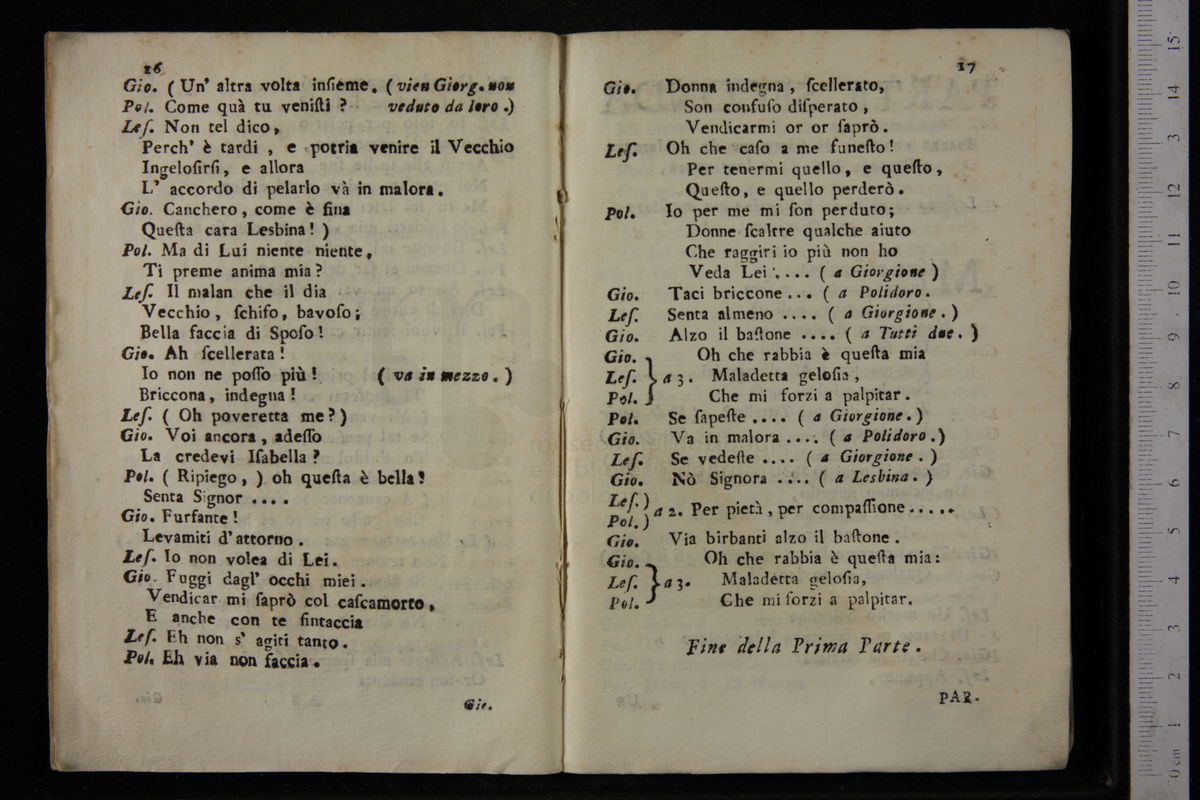 16
Gio. ( Un' altra volta insieme. ( vien Giorg. non
Pol. Come quà tu venisti ? veduto da loro .)
Les. Non tel dico,
Perch' è tardi , e potria venire il Vecchio
Ingelosirsi, e allora
L' accordo di pelarlo và in malora.
Gio. Canchero, come è fina
Questa cara Lesbina! )
Pol. Ma di Lui niente niente,
Ti preme anima mia?
Les. Il malan che il dia
Vecchio, schifo, bavoso;
Bella faccia di Sposo!
Gio. Ah scellerata!
Io non ne posso più! ( va in mezzo. )
Briccona, indegna!
Les. ( Oh poveretta me?)
Gio. Voi ancora, adesso
La credevi Isabella?
Pol. ( Ripiego, ) oh questa è bella!
Senta Signor ....
Gio. Furfante!
Levamiti d'attorno.
Les. Io non volea di Lei.
Gio. Fuggi dagl' occhi miei.
Vendicar mi saprò col cascamorto,
E anche con te fintaccia
Les. Eh non s' agiti tanto.
Pol. Eh via non faccia.
Gio.
17
Gio. Donna indegna, scellerato,
Son confuso disperato,
Vendicarmi or or saprò.
Les. Oh che caso a me funesto!
Per tenermi quello, e questo,
Questo, e quello perderò.
Pol. Io per me mi son perduto;
Donne scaltre qualche aiuto
Che raggiri io più non ho
Veda Lei .... ( a Giorgione )
Gio. Taci briccone... ( a Polidoro.
Les. Senta almeno .... ( a Giorgione. )
Gio. Alzo il bastone .... ( a Tutti due. )
Gio. Oh che rabbia è questa mia
Les. } a 3. Maladetta gelosia,
Pol. Che mi forzi a palpitar.
Pol. Se sapeste .... ( a Giorgione.)
Gio. Va in malora .... ( a Polidoro.)
Les. Se vedeste .... ( a Giorgione. )
Gio. Nò Signora .... ( a Lesbina. )
Les.)
a 2. Per pietà, per compassione.....
Pol.)
Gio. Via birbanti alzo il bastone.
Gio. Oh che rabbia è questa mia:
Les. } a 3. Maladetta gelosia,
Pol. Che mi forzi a palpitar.
Fine della Prima Parte.
PAR-